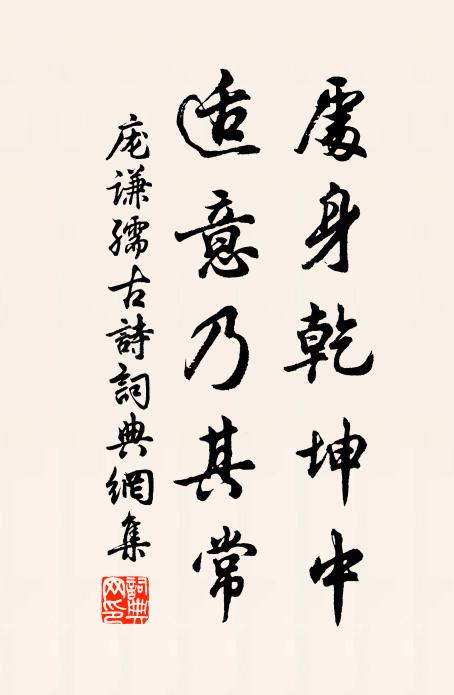 處身乾坤中
适意乃其常
庞谦孺古詩詞典網集
詞典網印